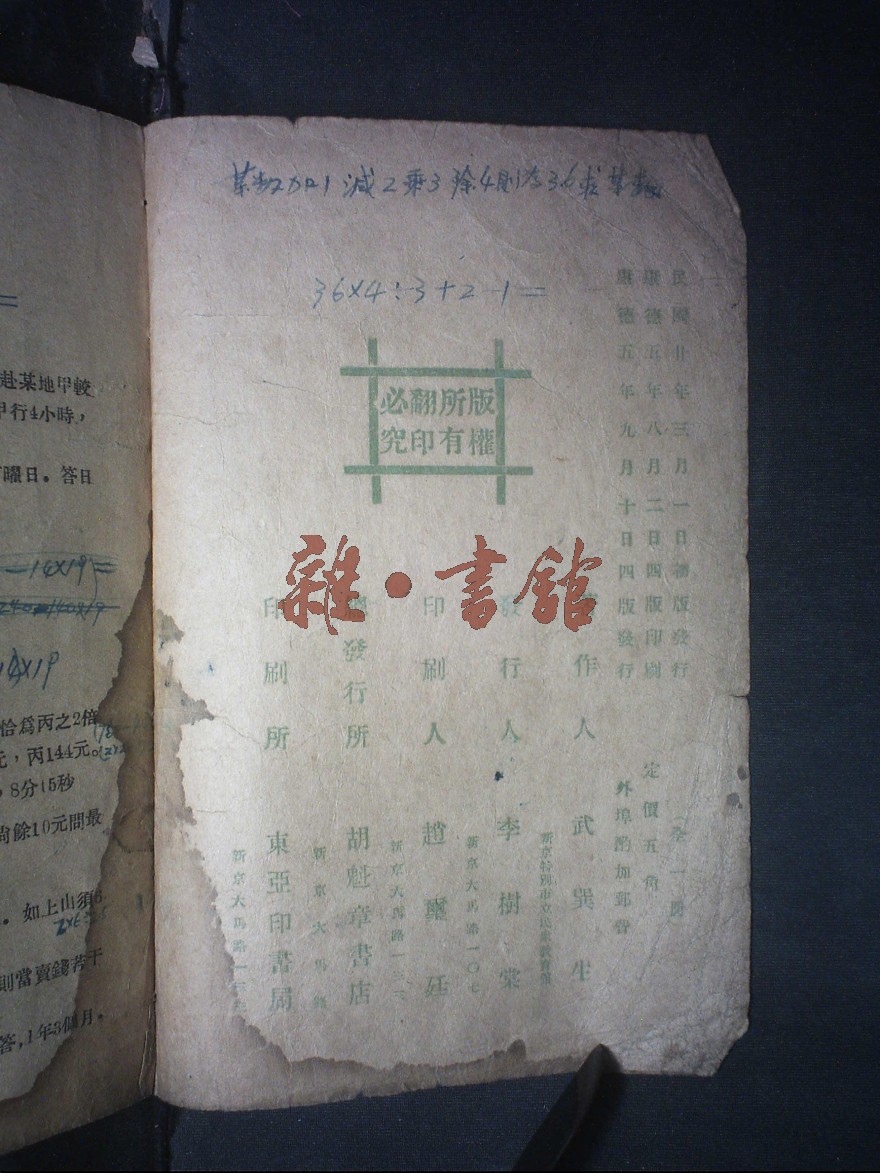 某数加1減2乘3除4則為36求某数
36×4÷3+2-1=
版權所有翻印必究
民國廿年三月一日初版發行
康德五年八月二日四版印刷
康德五年九月十日四版發行
(全一冊)
定價五角
外埠酌加郵費
著作人 武巽生
發行人 李樹棠
新京大馬路一〇七
印刷人 趙璽廷
新京大馬路一三二
總發行所 胡魁章書店
新京大馬路
印刷所 東亞印書局
新京大馬路一三
雜·書館
=
赴某地甲較
甲行4小時,
曜日。答日
=14×19=
14×19
恰爲丙之2倍
元,丙144元。
8分15秒
尙餘10元問最
。如上山須6
則當賣錢若干
答,1年3個月。